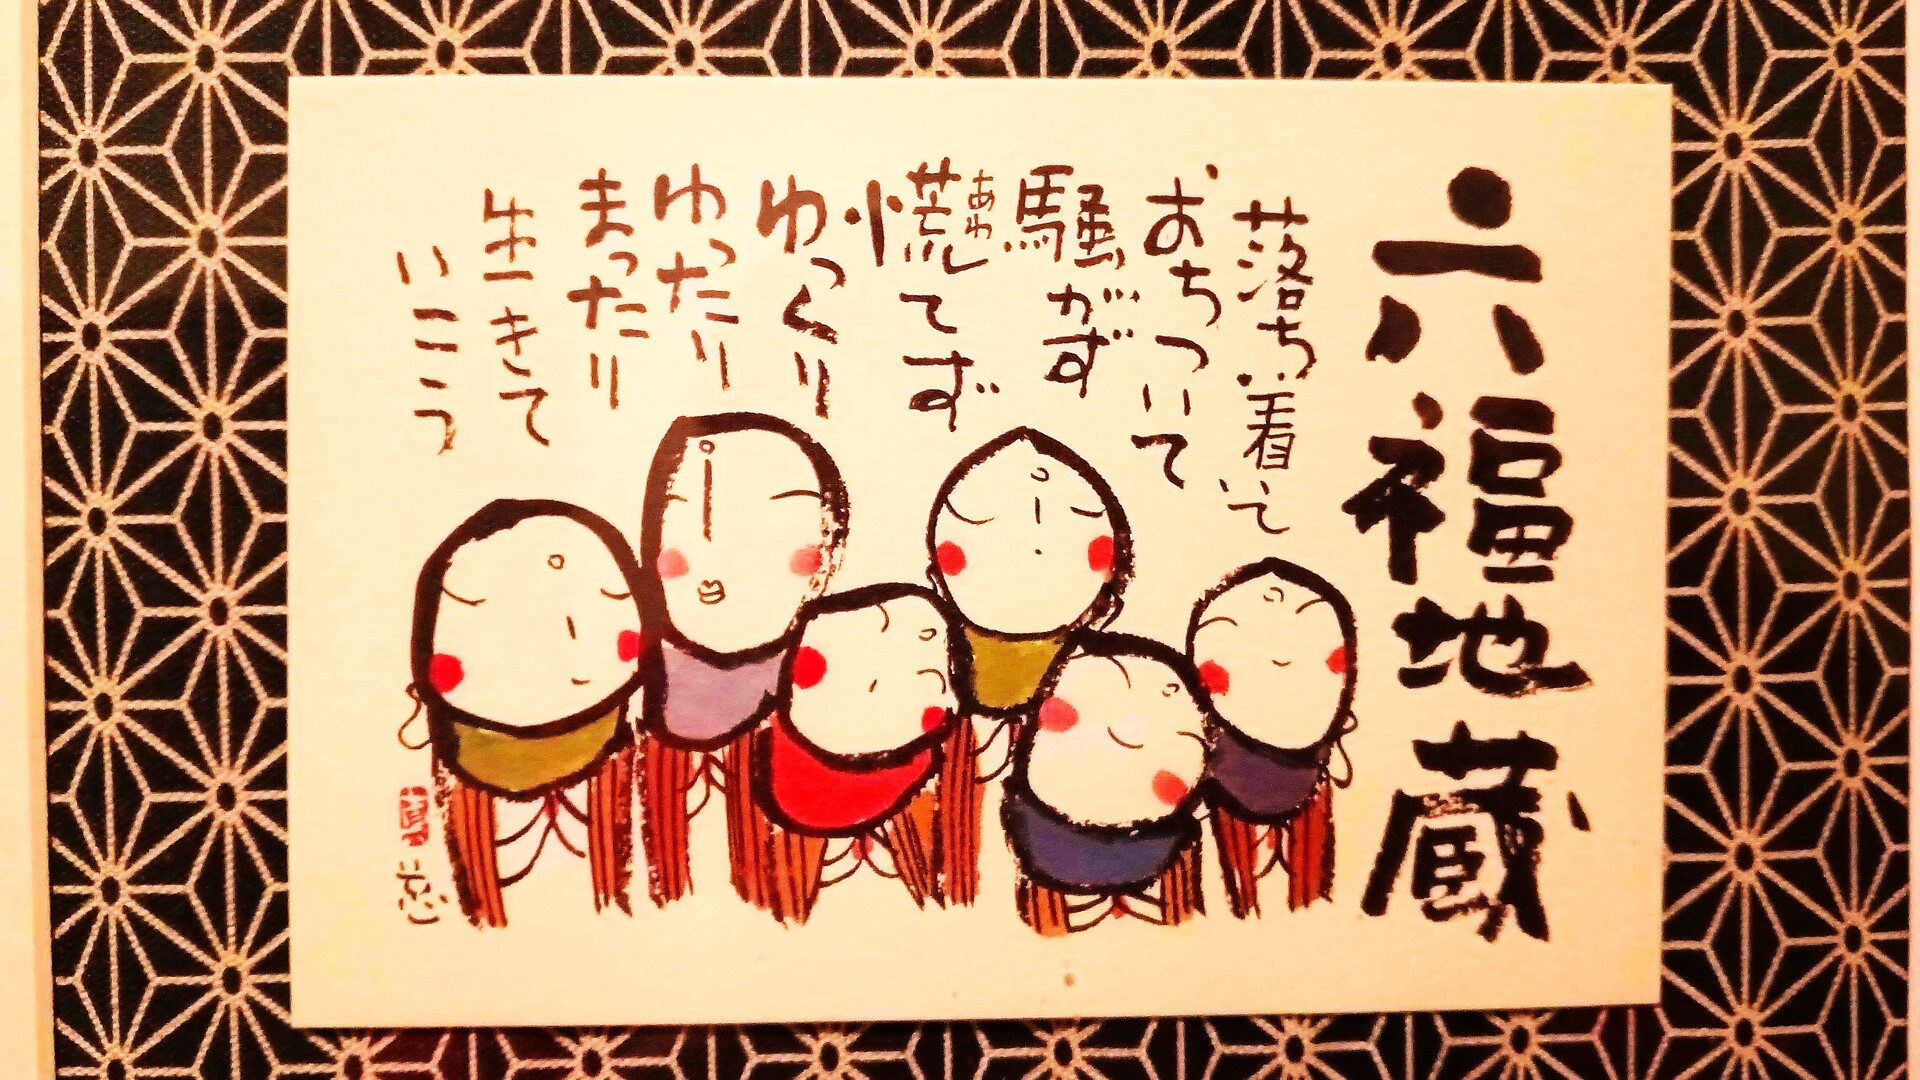 六福地蔵
落ち着いて
おちついて
騒がず
慌てず
あわ
ゆっくり
ゆったり
まったり
生きて
いこう